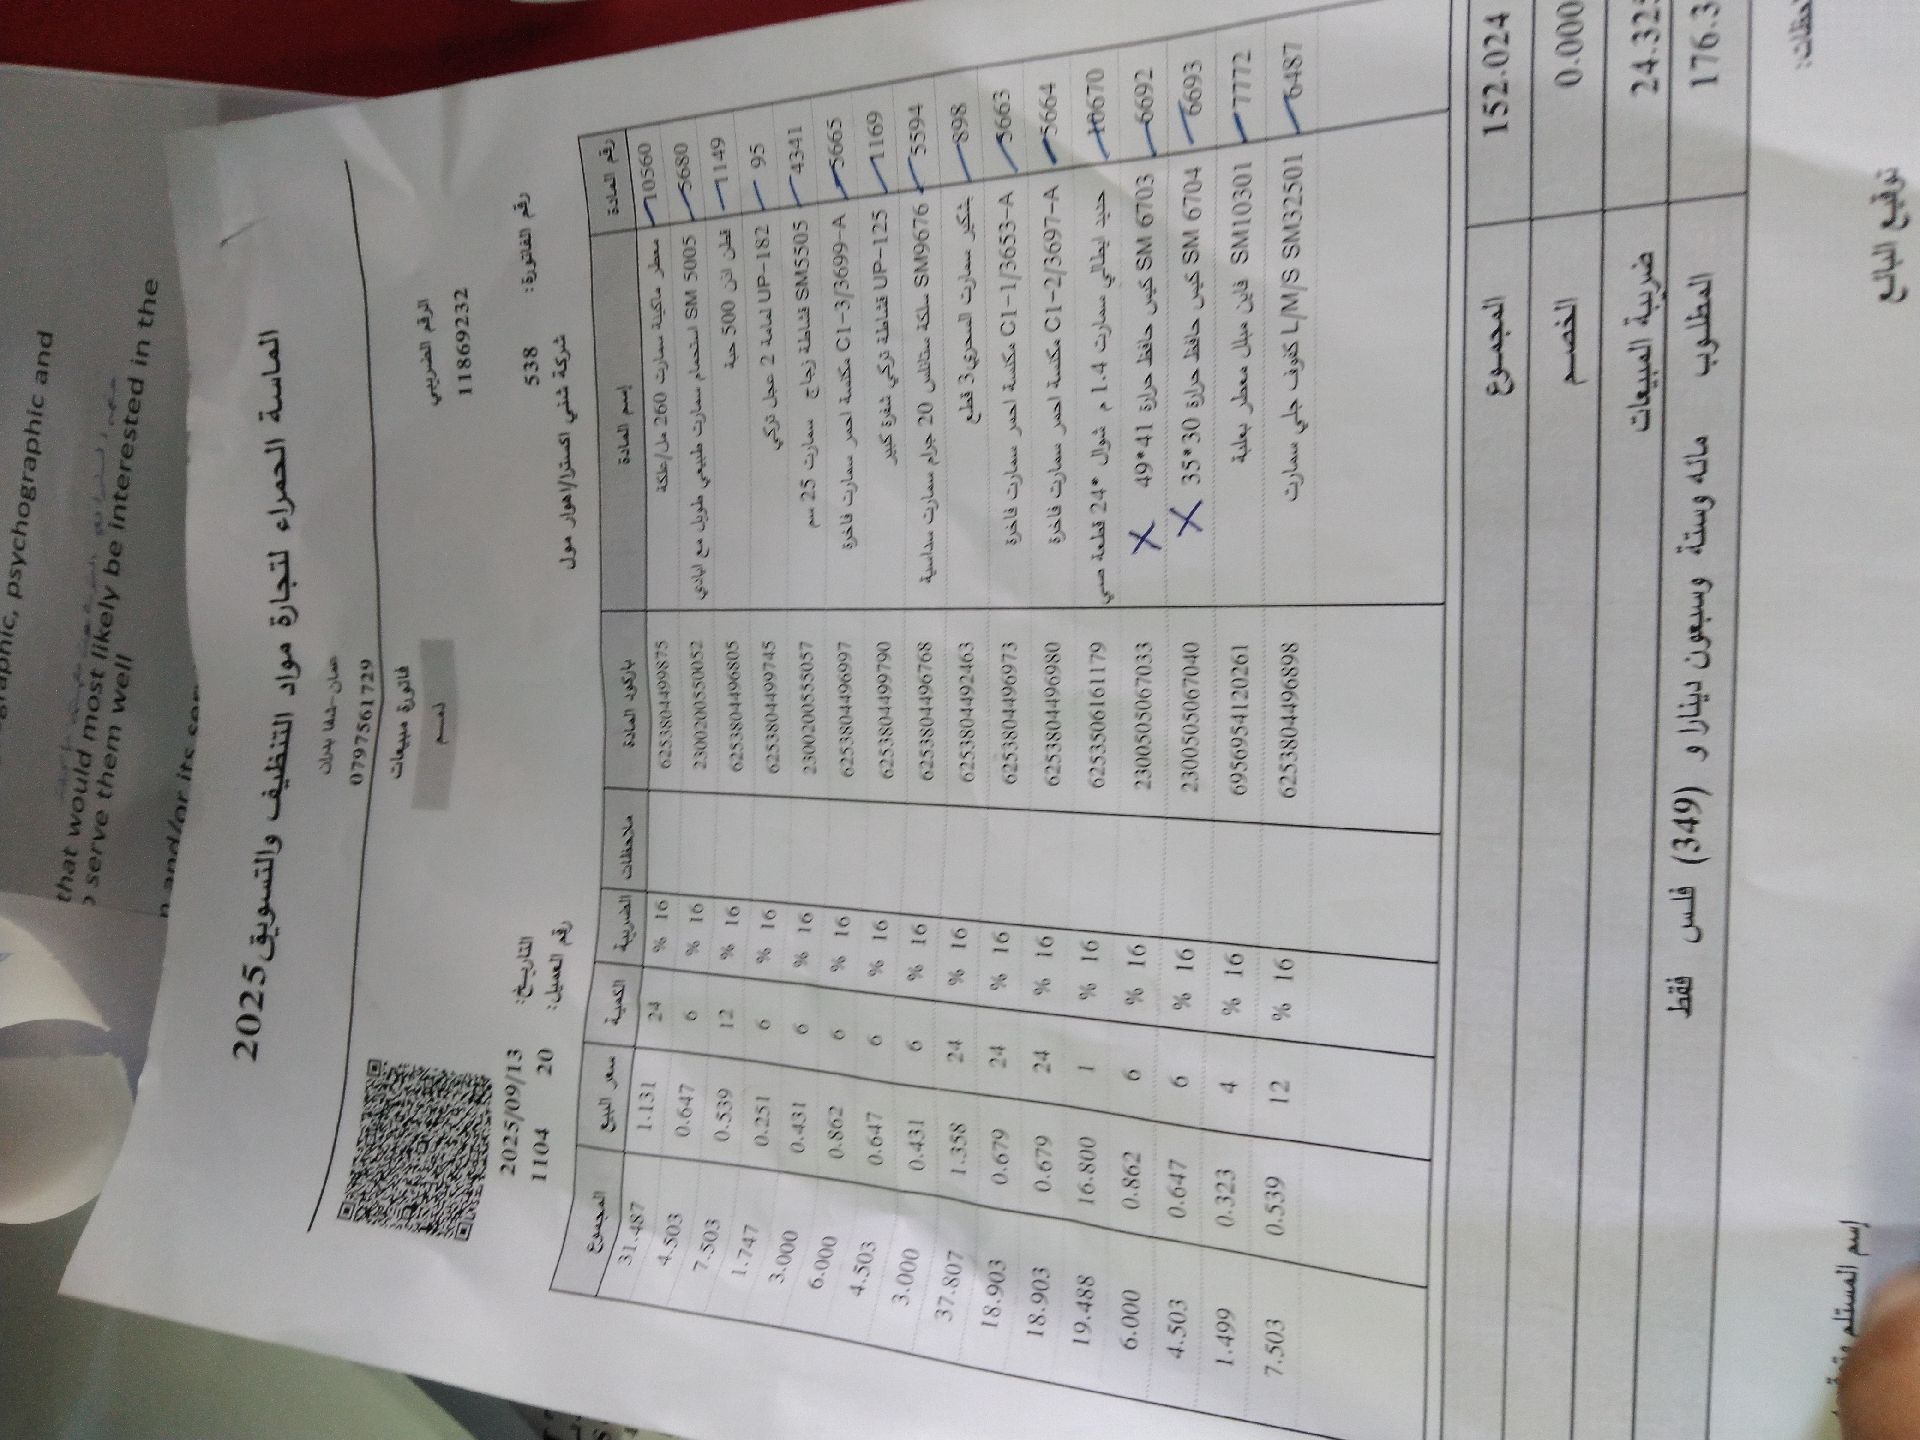 graphic, psychographic and
that would most likely be interested in the
serve them well
and/or its
الماسة الحمراء لتجارة مواد التنظيف والتسويق2025
عمان-شفا بدران
0797561729
الرقم الضريبي
11869232
فاتورة مبيعات
ذمم
رقم الفاتورة: 538 التاريخ: 2025/09/13
شركة شني اكسترا/اهوار مول رقم العميل: 20 1104
رقم المادة إسم المادة باركود المادة ملاحظات الضريبة الكمية سعر البيع المجموع
10560 معطر ماكينة سمارت 260 مل/علكة 6253804499875 % 16 24 1.131 31.487
5680 SM 5005 استحمام سمارت طبيعي طويل مع ايادي 2300200550052 % 16 6 0.647 4.503
1149 قطن اذن 500 حبة 6253804496805 % 16 12 0.539 7.503
95 UP-182 لمامة 2 عجل تركي 6253804499745 % 16 6 0.251 1.747
4341 SM5505 قشاطة زجاج سمارت 25 سم 2300200555057 % 16 6 0.431 3.000
5665 C1-3/3699-A مكنسة احمر سمارت فاخرة 6253804496997 % 16 6 0.862 6.000
1169 UP-125 قشاطة تركي شفرة كبير 6253804499790 % 16 6 0.647 4.503
5594 SM9676 سلكة ستانلس 20 جرام سمارت سداسية 6253804496768 % 16 6 0.431 3.000
898 شكير سمارت السحري3 قطع 6253804492463 % 16 24 1.358 37.807
5663 C1-1/3653-A مكنسة احمر سمارت فاخرة 6253804496973 % 16 24 0.679 18.903
5664 C1-2/3697-A مكنسة احمر سمارت فاخرة 6253804496980 % 16 24 0.679 18.903
10670 حديد ايطالي سمارت 1.4 م شوال *24 قطعة صي 6253506161179 % 16 1 16.800 19.488
6692 SM 6703 كيس حافظ حرارة 41*49 X 2300505067033 % 16 6 0.862 6.000
6693 SM 6704 كيس حافظ حرارة 30*35 X 2300505067040 % 16 6 0.647 4.503
7772 SM10301 فاين مبلل معطر بعلبة 6956954120261 % 16 4 0.323 1.499
6487 L/M/S SM32501 كفوف جلي سمارت 6253804496898 % 16 12 0.539 7.503
152.024 المجموع
0.000 الخصم
24.32 ضريبة المبيعات
176.3 المطلوب مائه وستة وسبعون دينارا و (349) فلس فقط
توقيع البائع إسم المستلم